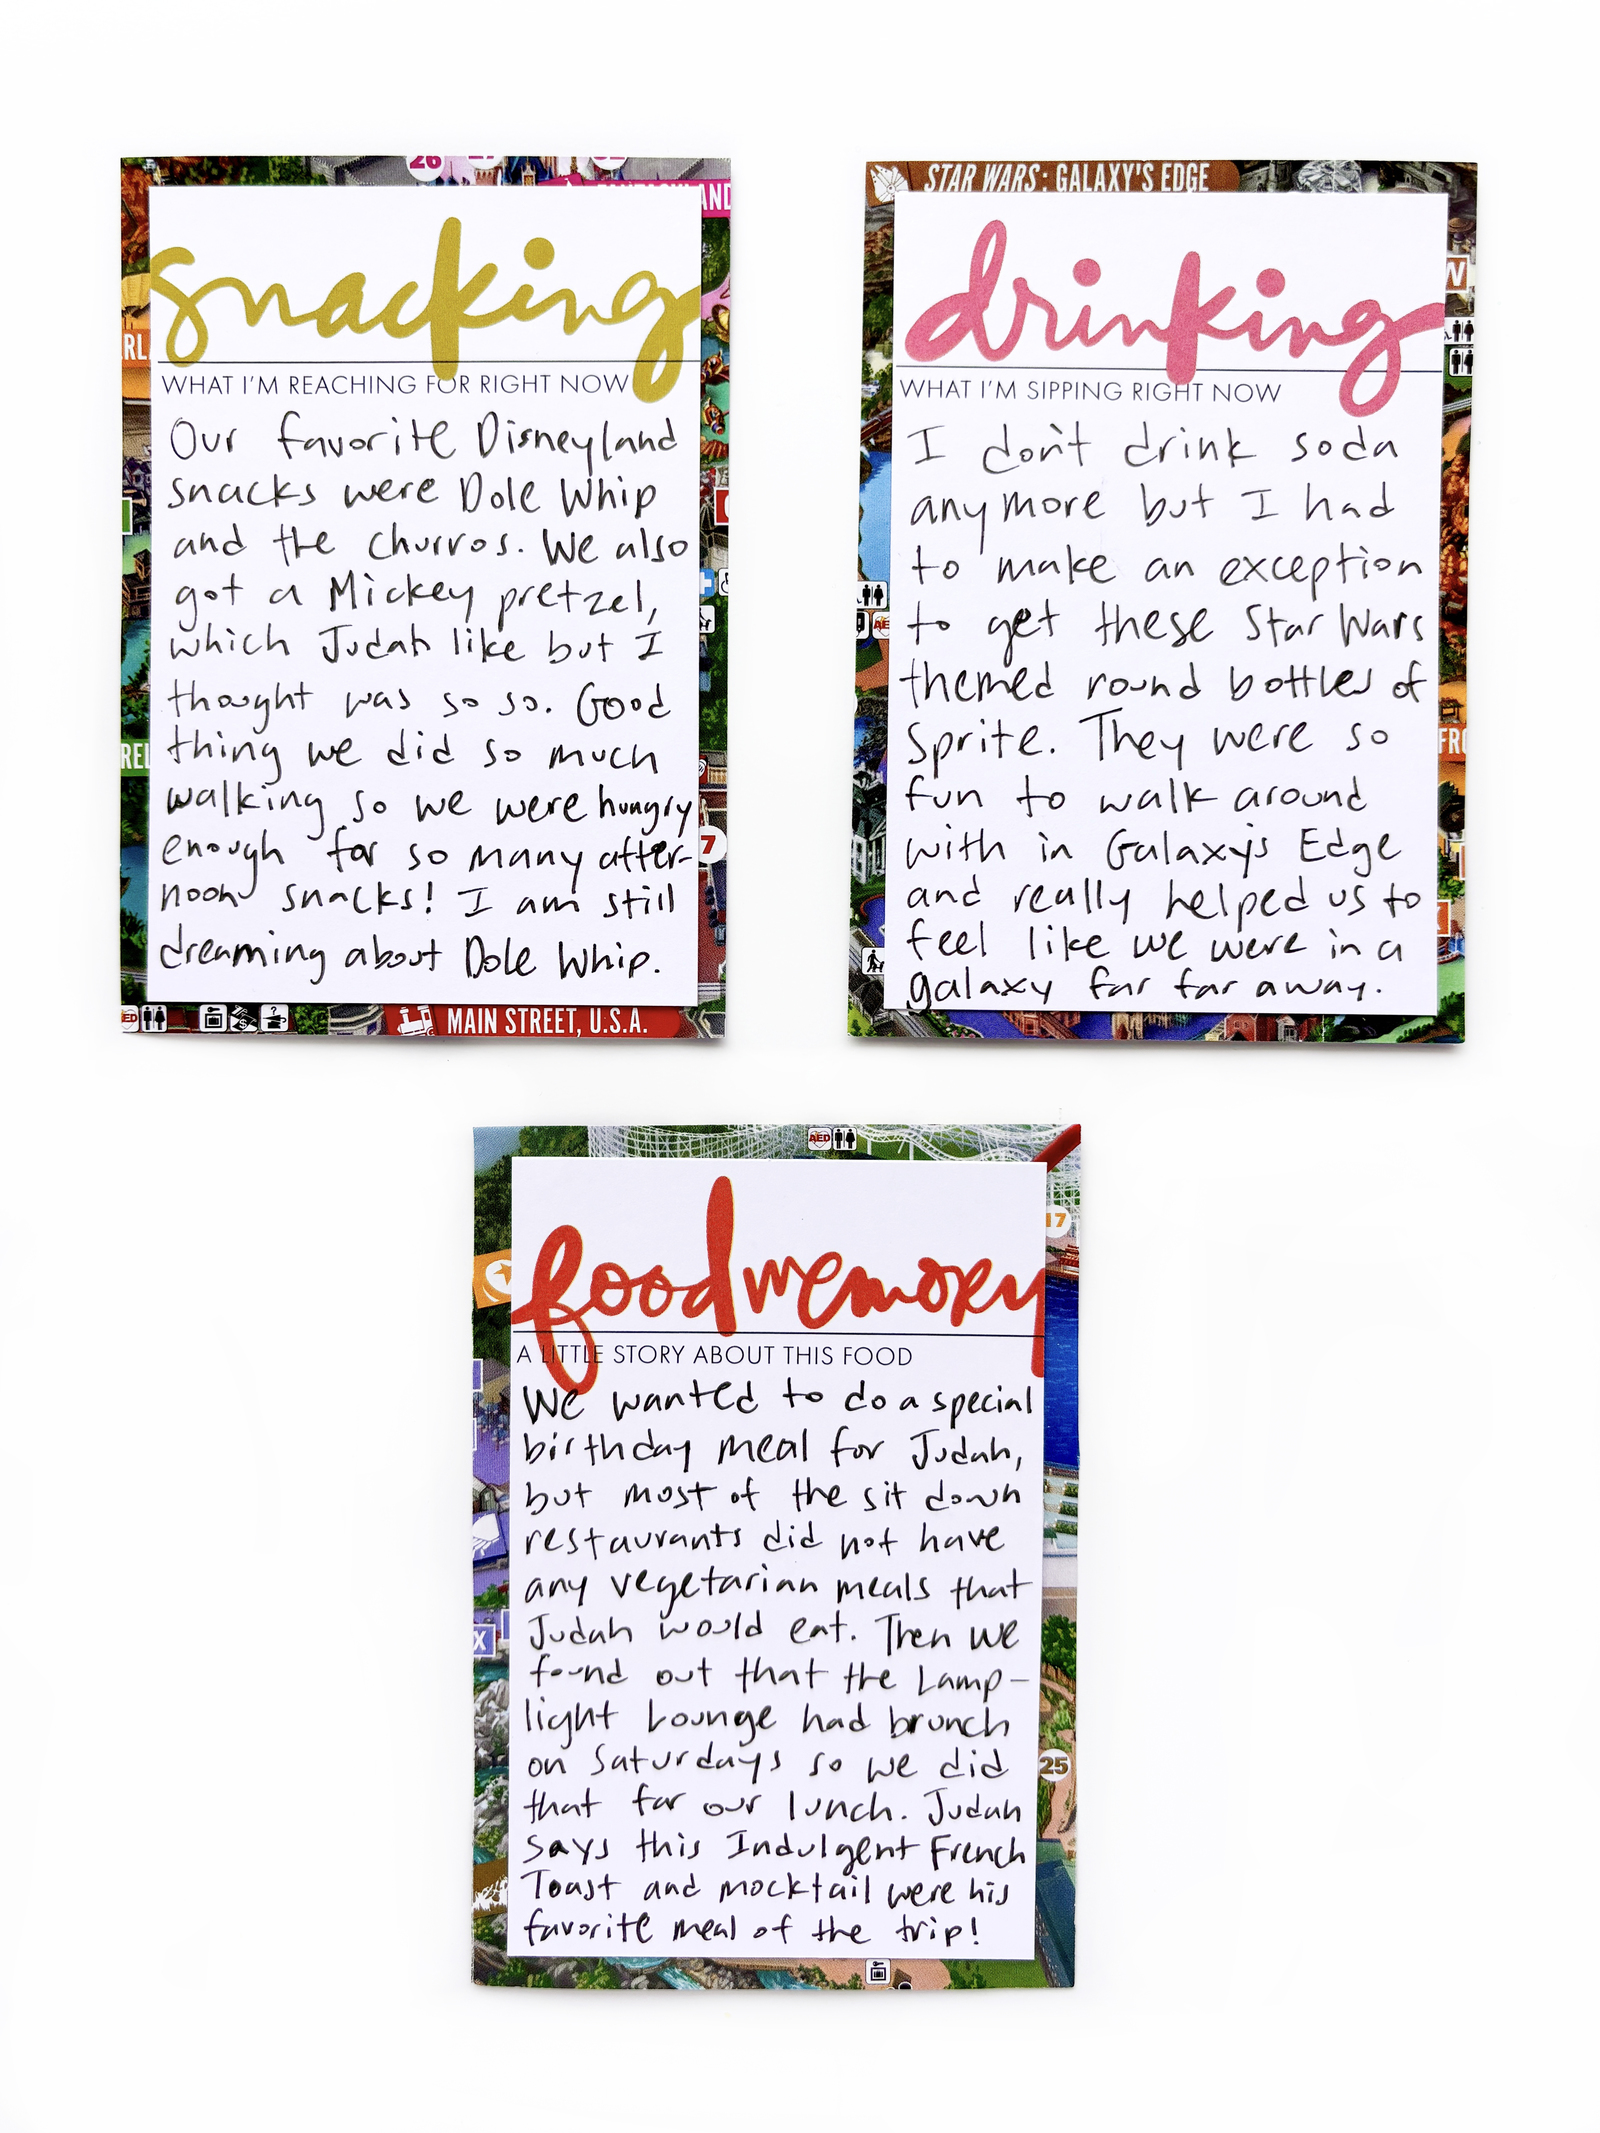 26 27
LAND
snacking
WHAT I'M REACHING FOR RIGHT NOW
Our favorite Disneyland
snacks were Dole Whip
and the churros. We also
got a Mickey pretzel,
which Judah like but I
thought was so so. Good
thing we did so much
walking so we were hungry
enough for so many after-
noon snacks! I am still
dreaming about Dole Whip.
7
MAIN STREET, U.S.A.
STAR WARS: GALAXY'S EDGE
drinking
WHAT I'M SIPPING RIGHT NOW
I don't drink soda
anymore but I had
to make an exception
to get these Star Wars
themed round bottles of
Sprite. They were so
fun to walk around
with in Galaxy's Edge
and really helped us to
feel like we were in a
galaxy far far away.
AED
17
food memory
A LITTLE STORY ABOUT THIS FOOD
We wanted to do a special
birthday meal for Judah,
but most of the sit down
restaurants did not have
any vegetarian meals that
Judah would eat. Then we
found out that the Lamp-
light Lounge had brunch
on Saturdays so we did
that for our lunch. Judah
says this Indulgent French
Toast and mocktail were his
favorite meal of the trip!
25